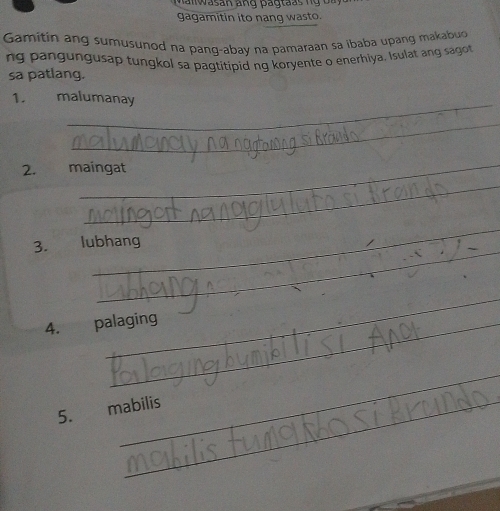 ang pagtaas ng
gagamitin ito nang wasto.
Gamitin ang sumusunod na pang-abay na pamaraan sa ibaba upang makabuo
ng pangungusap tungkol sa pagtitipid ng koryente o enerhiya. Isulat ang sagot
sa patlang.
1. malumanay
malumanay na nagtanong si Brando
2. maingat
maingat na nagluluto si Brando
3. lubhang
lubhang
4. palaging
Palaging bumibili si Ana
5. mabilis
mabilis tumakbo si Brundo